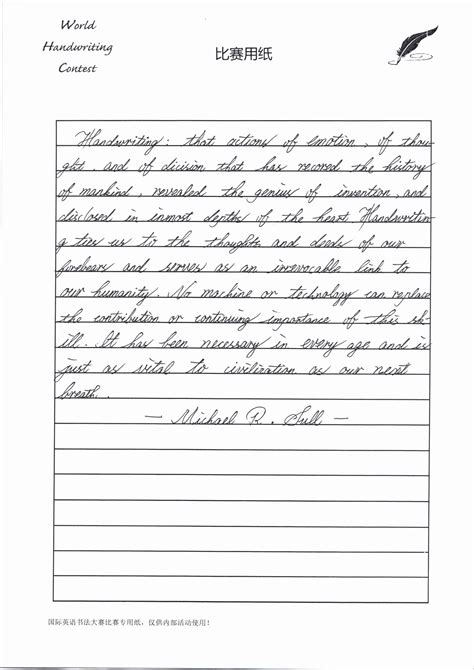 World
Handwriting
Contest
比赛用纸
Handwriting: that actions of emotion, of thou
ght, and of dicision that has recored the history
of mankind, revealed the genius of invention, and
disclosed in inmost depths of the heart. Handwritin
g ties us to the thoughts and deeds of our
forebears and serves as an irrevocable link to
our humanity. No machine or technology can replace
the contribution or continuing importance of this sk
ill. It has been necessary in every age and is
just as vital to civilization as our next
breath.
— Michael R. Sull —
国际英语书法大赛比赛专用纸，仅供内部活动使用！